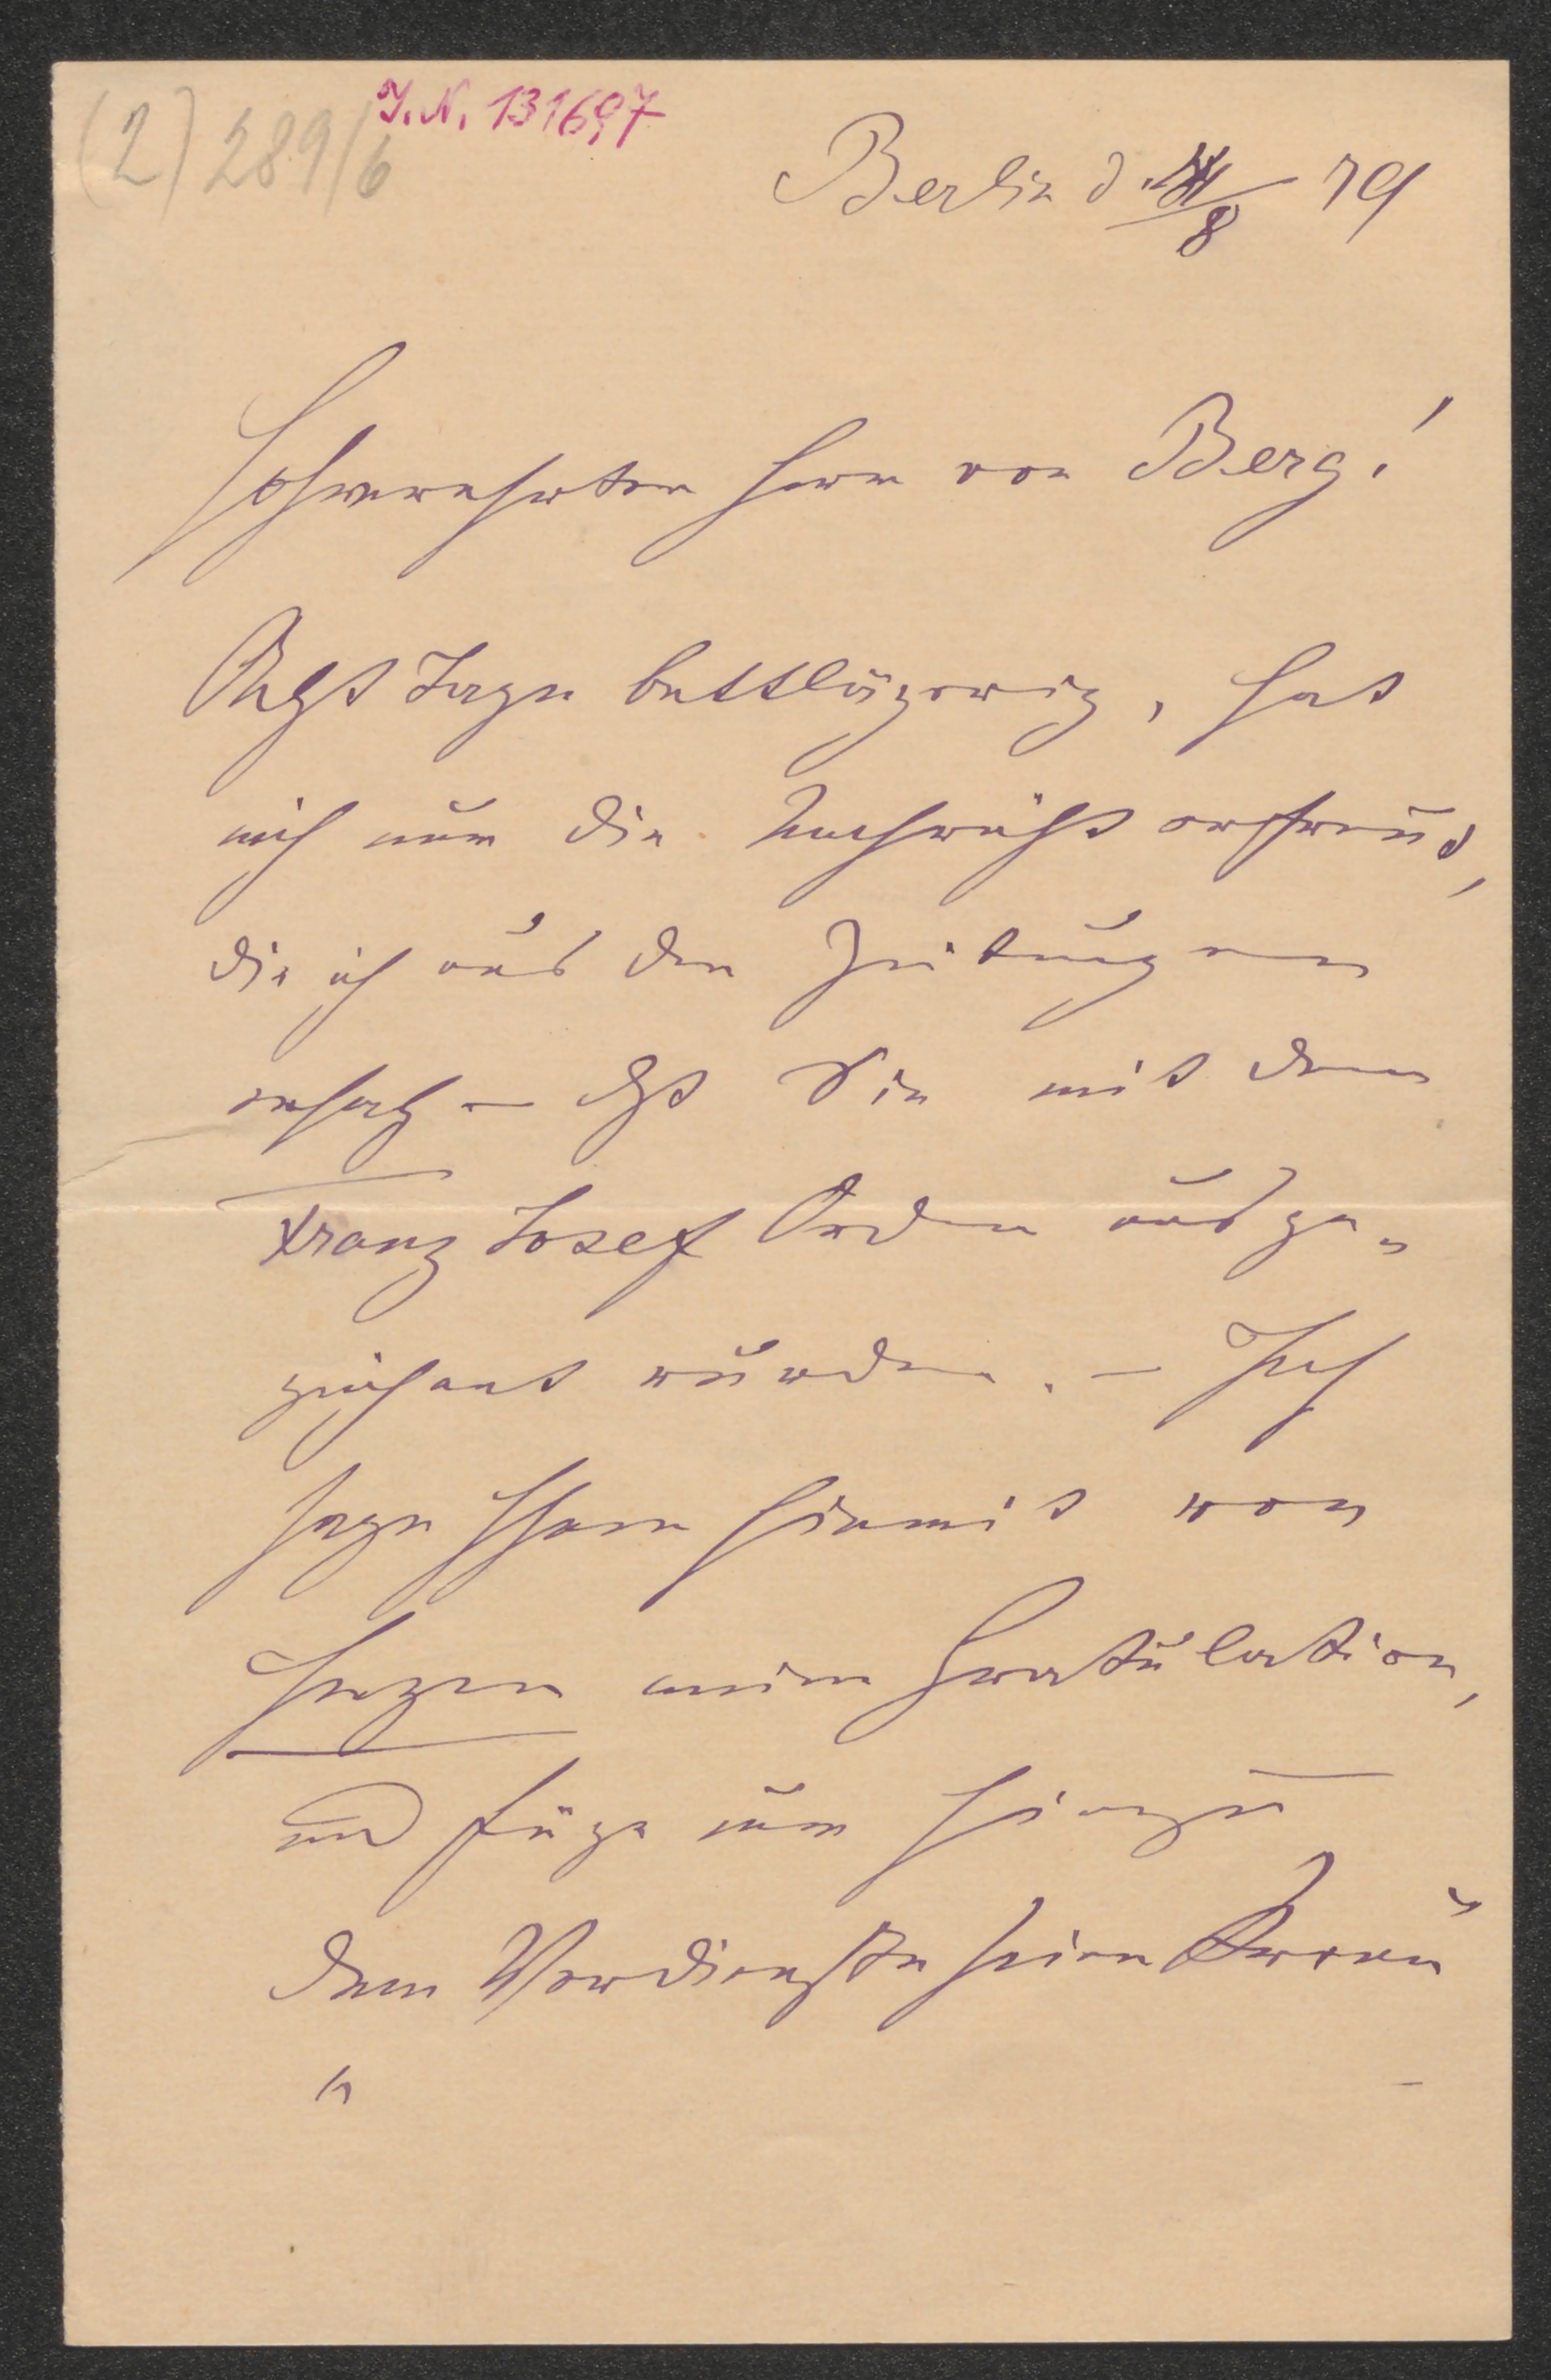 (2) 289/6
I.N. 131697
Berlin d. /8 79
Hochverehrter Herr von Berg!
Acht Tage bettlägerig, hat
mich nur die Nachricht erfreut,
die ich aus den Zeitungen
ersah – daß Sie mit dem
Franz Josef Orden ausge-
zeichnet wurden. – Ich
sage Ihnen hiemit von
Herzen meine Gratulation,
und füge nur hinzu
„Dem Verdienste seine Krone“